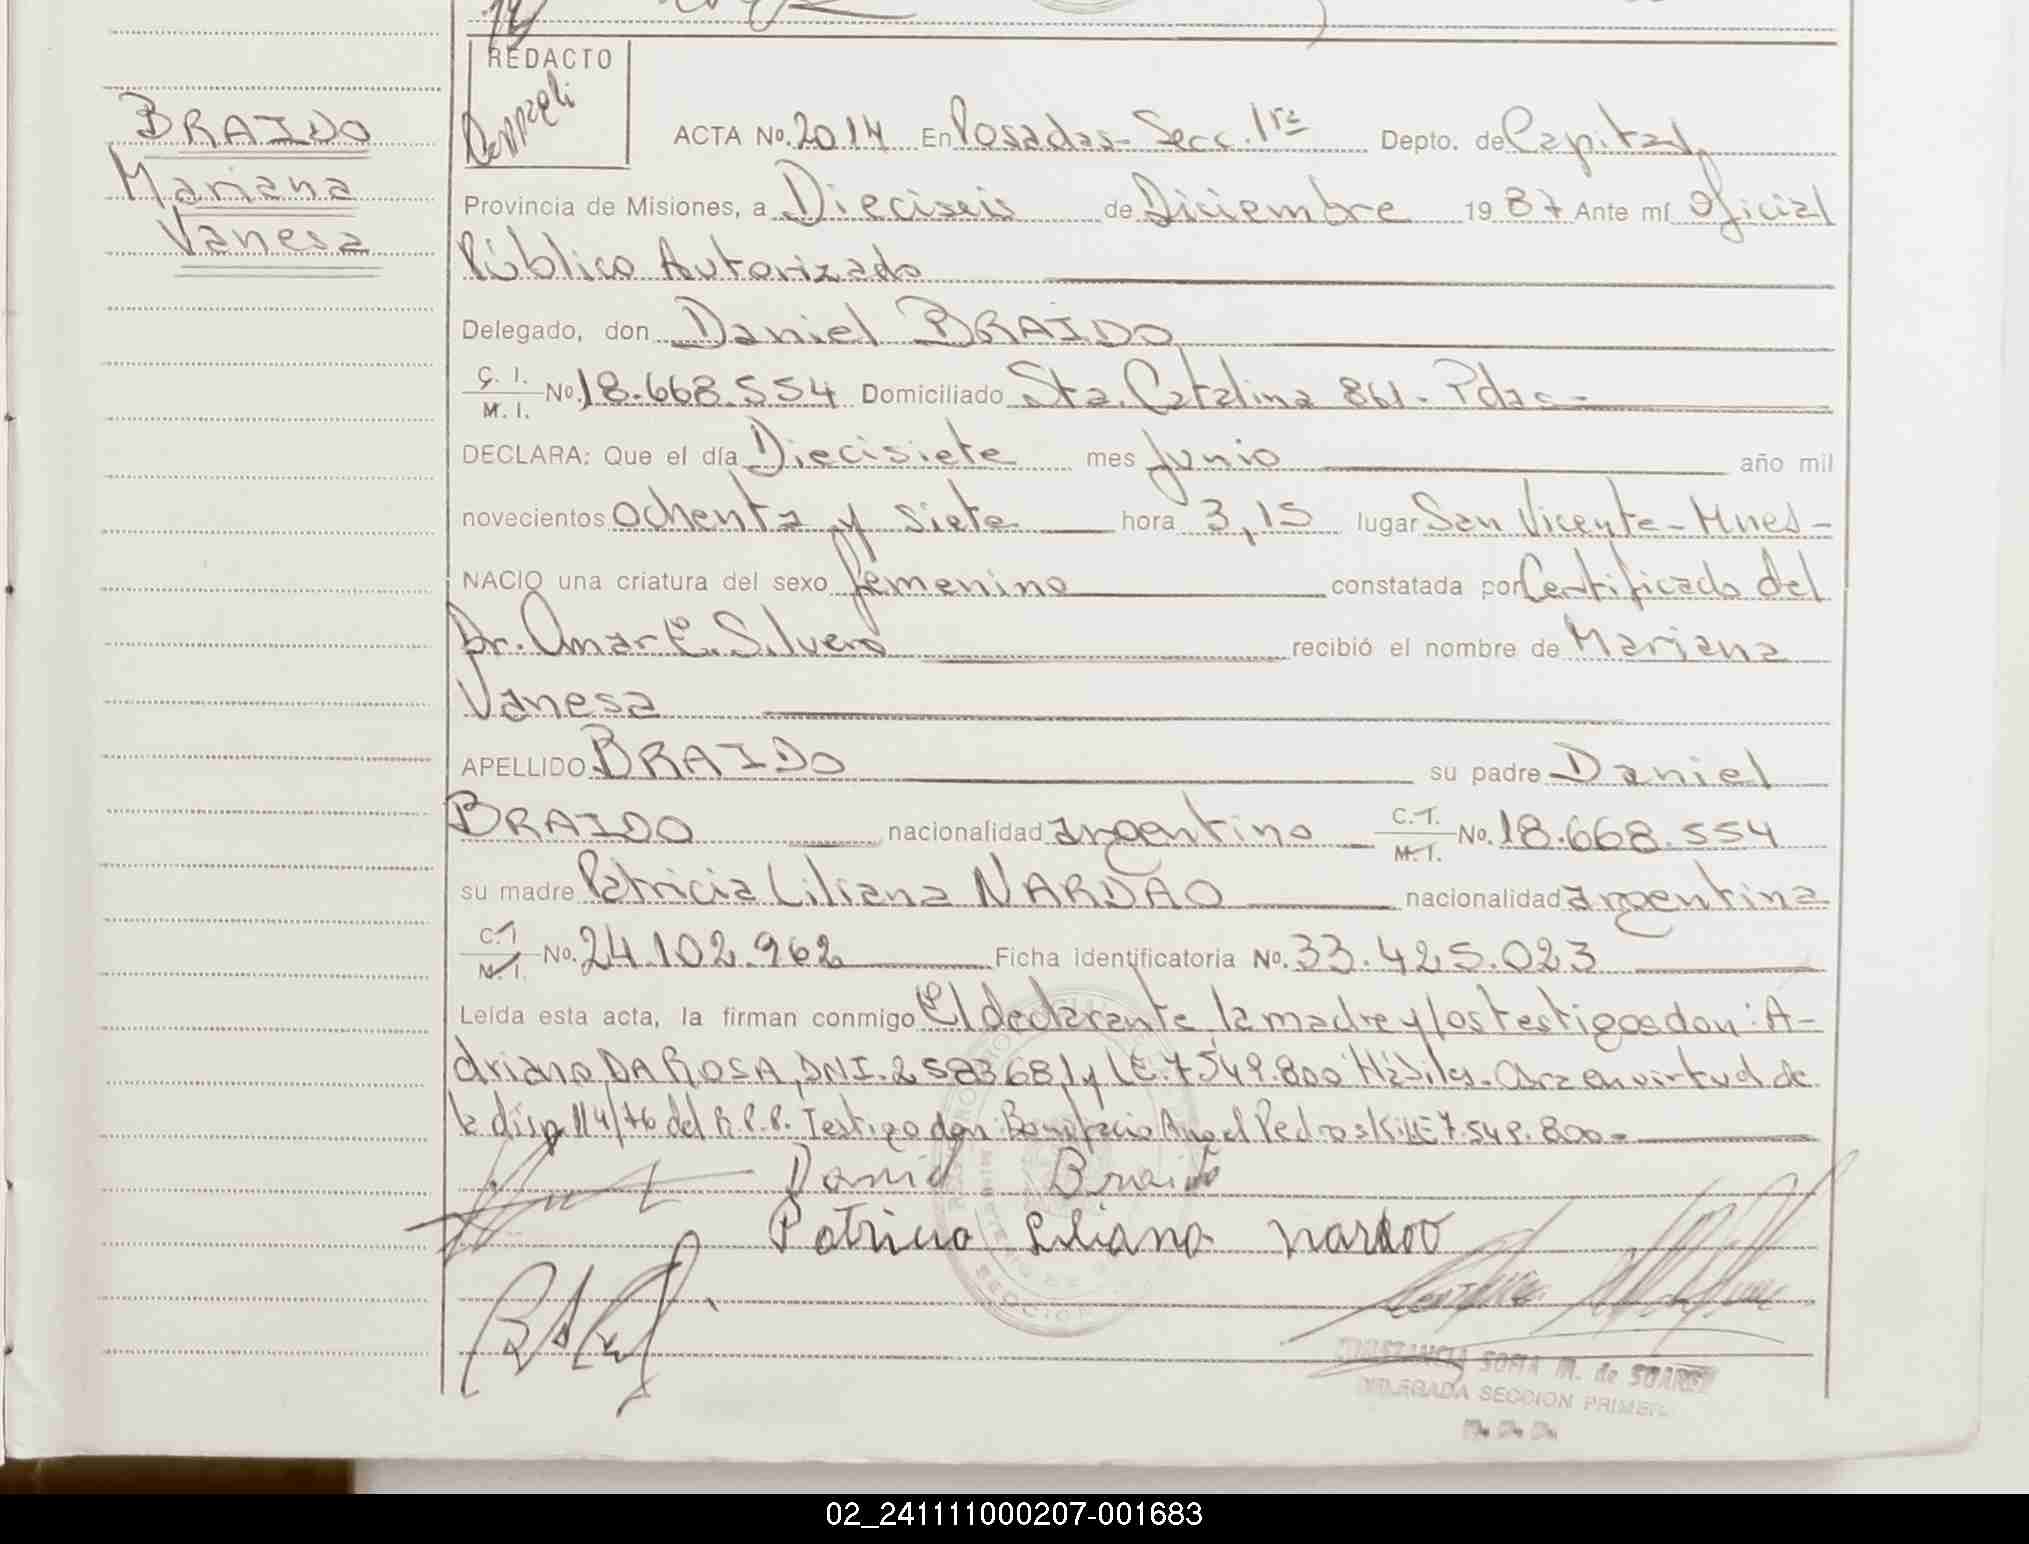 REDACTO
BRAIDO
Mariana
Vanesa
ACTA No. 2014 En Posadas - Secc. 1ra Depto. de Capital
Provincia de Misiones, a Dieciseis de Diciembre 1987 Ante mí Oficial
Público Autorizado
Delegado, don Daniel BRAIDO
C. I. M. I. No. 18.668.554 Domiciliado Sta. Catalina 861 - Pdas -
DECLARA: Que el día Diecisiete mes Junio año mil
novecientos ochenta y siete hora 3,15 lugar San Vicente - Mnes -
NACIO una criatura del sexo femenino constatada por Certificado del
Dr. Omar E. Silvero recibió el nombre de Mariana
Vanesa
APELLIDO BRAIDO su padre Daniel
BRAIDO nacionalidad argentino C.I. M.I. No. 18.668.554
su madre Patricia Liliana NARDAO nacionalidad argentina
C.I M.I. No. 24.102.962 Ficha identificatoria No. 33.425.023
Leída esta acta, la firman conmigo El declarante, la madre y los testigos don: A-
driano DA ROSA, DNI. y LE. 7.549.800 Hábiles. en virtud de
la disp 114/76 del R.P.P. Testigo don: Bonifacio Angel Pedroski LE 7.549.800 -
Daniel Braido
Patricia Liliana nardao
CONSTANCIA SOFIA M. de SUAREZ
DELEGADA SECCION PRIMERA
02_241111000207-001683